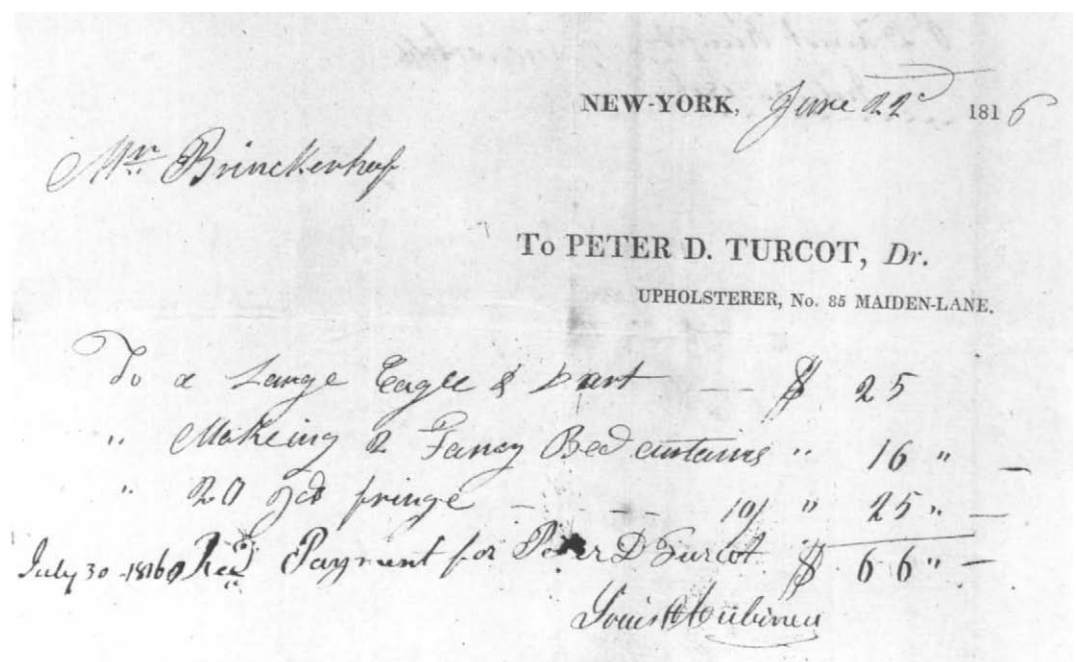 NEW-YORK, June 22d 1816
Mr. Brinckerhoff
To PETER D. TURCOT, Dr.
UPHOLSTERER, No. 85 MAIDEN-LANE.
To a Large Eagle & Dart — — $ 25
" Makeing 2 Fancy Bed curtains " 16 " —
" 20 yds fringe - - - - 10/ " 25 " —
July 30 - 1816 Recd Payment for Peter D Turcot $ 66 " —
Louis